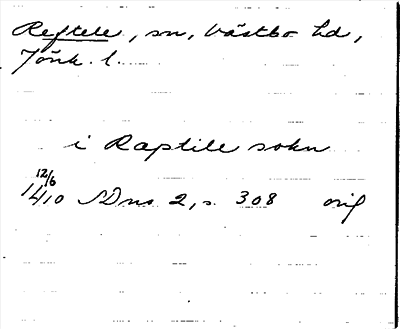 Reftele, sn, Västbo hd,
Jönk. l.
i Raptile sokn
12/6
1410 SDns 2, s. 308 orig